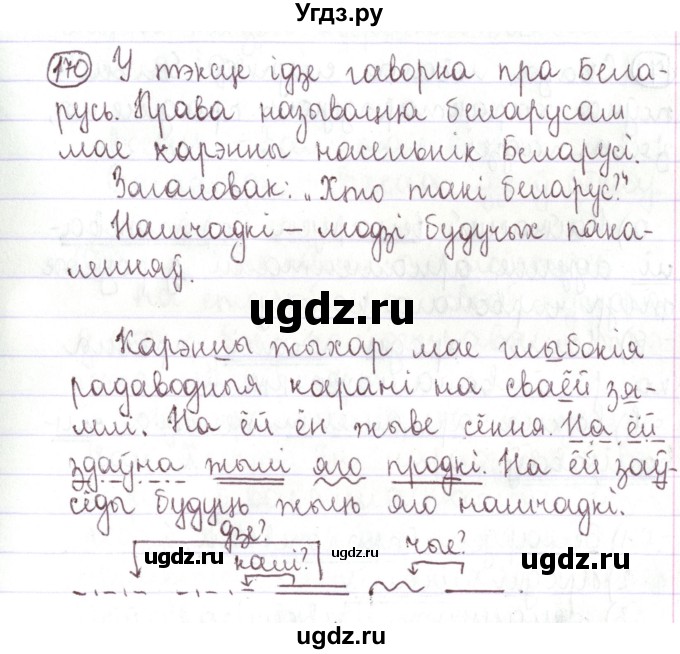 Угдз.ру
170 У тэксце ідзе гаворка пра Бела-
русь. Права называцца беларусам
мае карэнны насельнік Беларусі.
Загаловак: „Хто такі беларус?"
Нашчадкі – людзі будучых пака-
ленняў.
ugdz.ru
Карэнны жыхар мае глыбокія
радаводныя карані на сваёй зя-
млі. На ёй ён жыве сёння. На ёй
здаўна жылі яго продкі. На ёй заў-
сёды будуць жыць яго нашчадкі.
дзе?
калі? чые?
ugdz.ru ugdz.ru ugdz.ru ugdz.ru
ugdz.ru